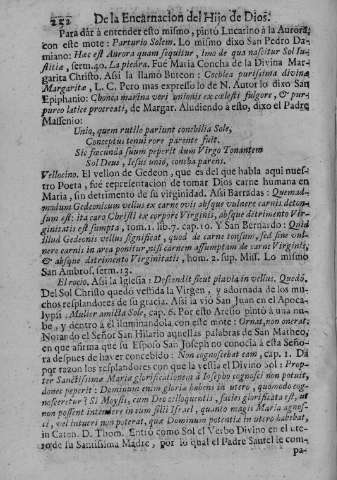 252 De la Encarnacion del Hijo de Dios.
Para dàr à entender esto mismo, pintò Lucarino à la Aurora,
con este mote: Parturio Solem. Lo mismo dixo San Pedro Da-
miano: Hac est Aurora quam sequitur, imo de qua nascitur Sol Iu-
stitiæ, serm. 40. La piedra. Fue Maria Concha de la Divina Mar-
garita Christo. Assi la llamò Buteon: Cochlea purissima divinæ
Margaritæ, L. C. Pero mas expresso lo de N. Autor lo dixo San
Epiphanio: Chonea marina veri unionis ex cælesti fulgore, & pur-
puro latice procreati, de Margar. Aludiendo à esto, dixo el Padre
Massenio:
Unio, quem rutilo pariunt conchilia Sole,
Conceptus tenui rore parente fuit.
Sic fœcunda suum peperit dum Virgo Tonantem
Sol Deus, Iesus unio, concha parens.
Vellocino. El vellon de Gedeon, que es del que habla aqui nues-
tro Poeta, fuè representacion de tomar Dios carne humana en
Maria, sin detrimento de su virginidad. Assi Barradas: Quemad-
modum Gedeonicum vellus ex carne ovis absque vulnere carnis deton-
sum est: ita caro Christi ex corpore Virginis, absque detrimento Vir-
ginitatis est sumpta, tom. 1. lib. 7. cap. 10. Y San Bernardo: Quid
illud Gedeonis vellus significat, quod de carne tonsum, sed sine vul-
nere carnis in area ponitur, nisi carnem assumptam de carne Virginis,
& absque detrimento Virginitatis, hom. 2. sup. Miss. Lo mismo
San Ambros. serm. 13.
El rocio. Assi la Iglesia: Descendit sicut pluvia in vellus. Quedò.
Del Sol Christo quedò vestida la Virgen, y adornada de los mu-
chos resplandores de su gracia. Assi la viò San Juan en el Apoca-
lypsi: Mulier amicta Sole, cap. 6. Por esto Aresio pintò à una nu-
be, y dentro à el iluminandola, con este mote: Ornat, non onerat.
Notando el Señor San Hilario aquellas palabras de San Matheo,
en que afirma que su Esposo San Joseph no conocia à esta Seño-
ra despues de haver concebido: Non cognoscebat eam, cap. 1. Dà
por razon los resplandores con que la vestia el Divino Sol: Prop-
ter Sanctissimæ Mariæ glorificationem à Iosepho cognosci non potuit,
donec peperit: Dominum enim gloriæ habens in utero, quomodo cog-
nosceretur? Si Moysis, cum Deo colloquentis, facies glorificata est, ut
non possent intendere in eum filii Israel, quanto magis Maria agnos-
ci, vel intueri non poterat, quæ Dominum potentiæ in utero habebat,
in Caten. D. Thom. Entrò como Sol el Verbo Divino en el ute-
ro de su Santissima Madre, por lo qual el Padre Sautel le com-
pa-